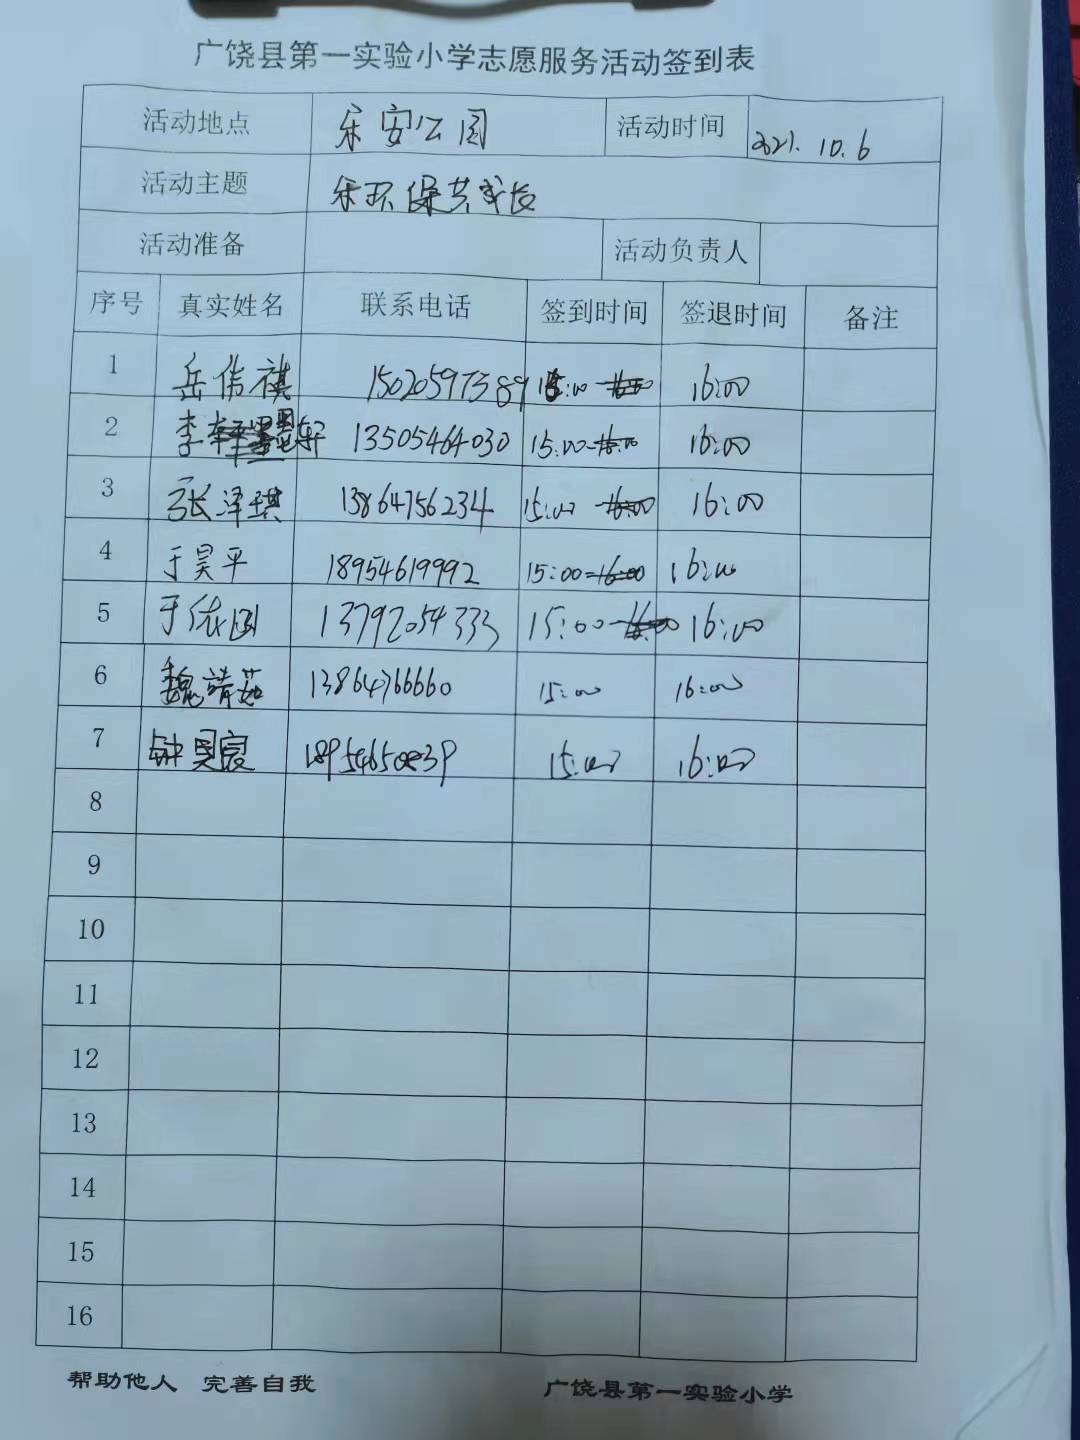 广饶县第一实验小学志愿服务活动签到表
活动地点 乐安公园 活动时间 2021.10.6
活动主题 乐环保共成长
活动准备 活动负责人
序号 真实姓名 联系电话 签到时间 签退时间 备注
1 岳伟祺 15020597389 15:00 16:00
2 李墨轩 13505464030 15:00 16:00
3 张泽琪 13864756234 15:00 16:00
4 于昊平 18954619992 15:00 16:00
5 于依 13792054333 15:00 16:00
6 魏靖茹 13864766660 15:00 16:00
7 钟 15:00 16:00
8
9
10
11
12
13
14
15
16
帮助他人 完善自我 广饶县第一实验小学